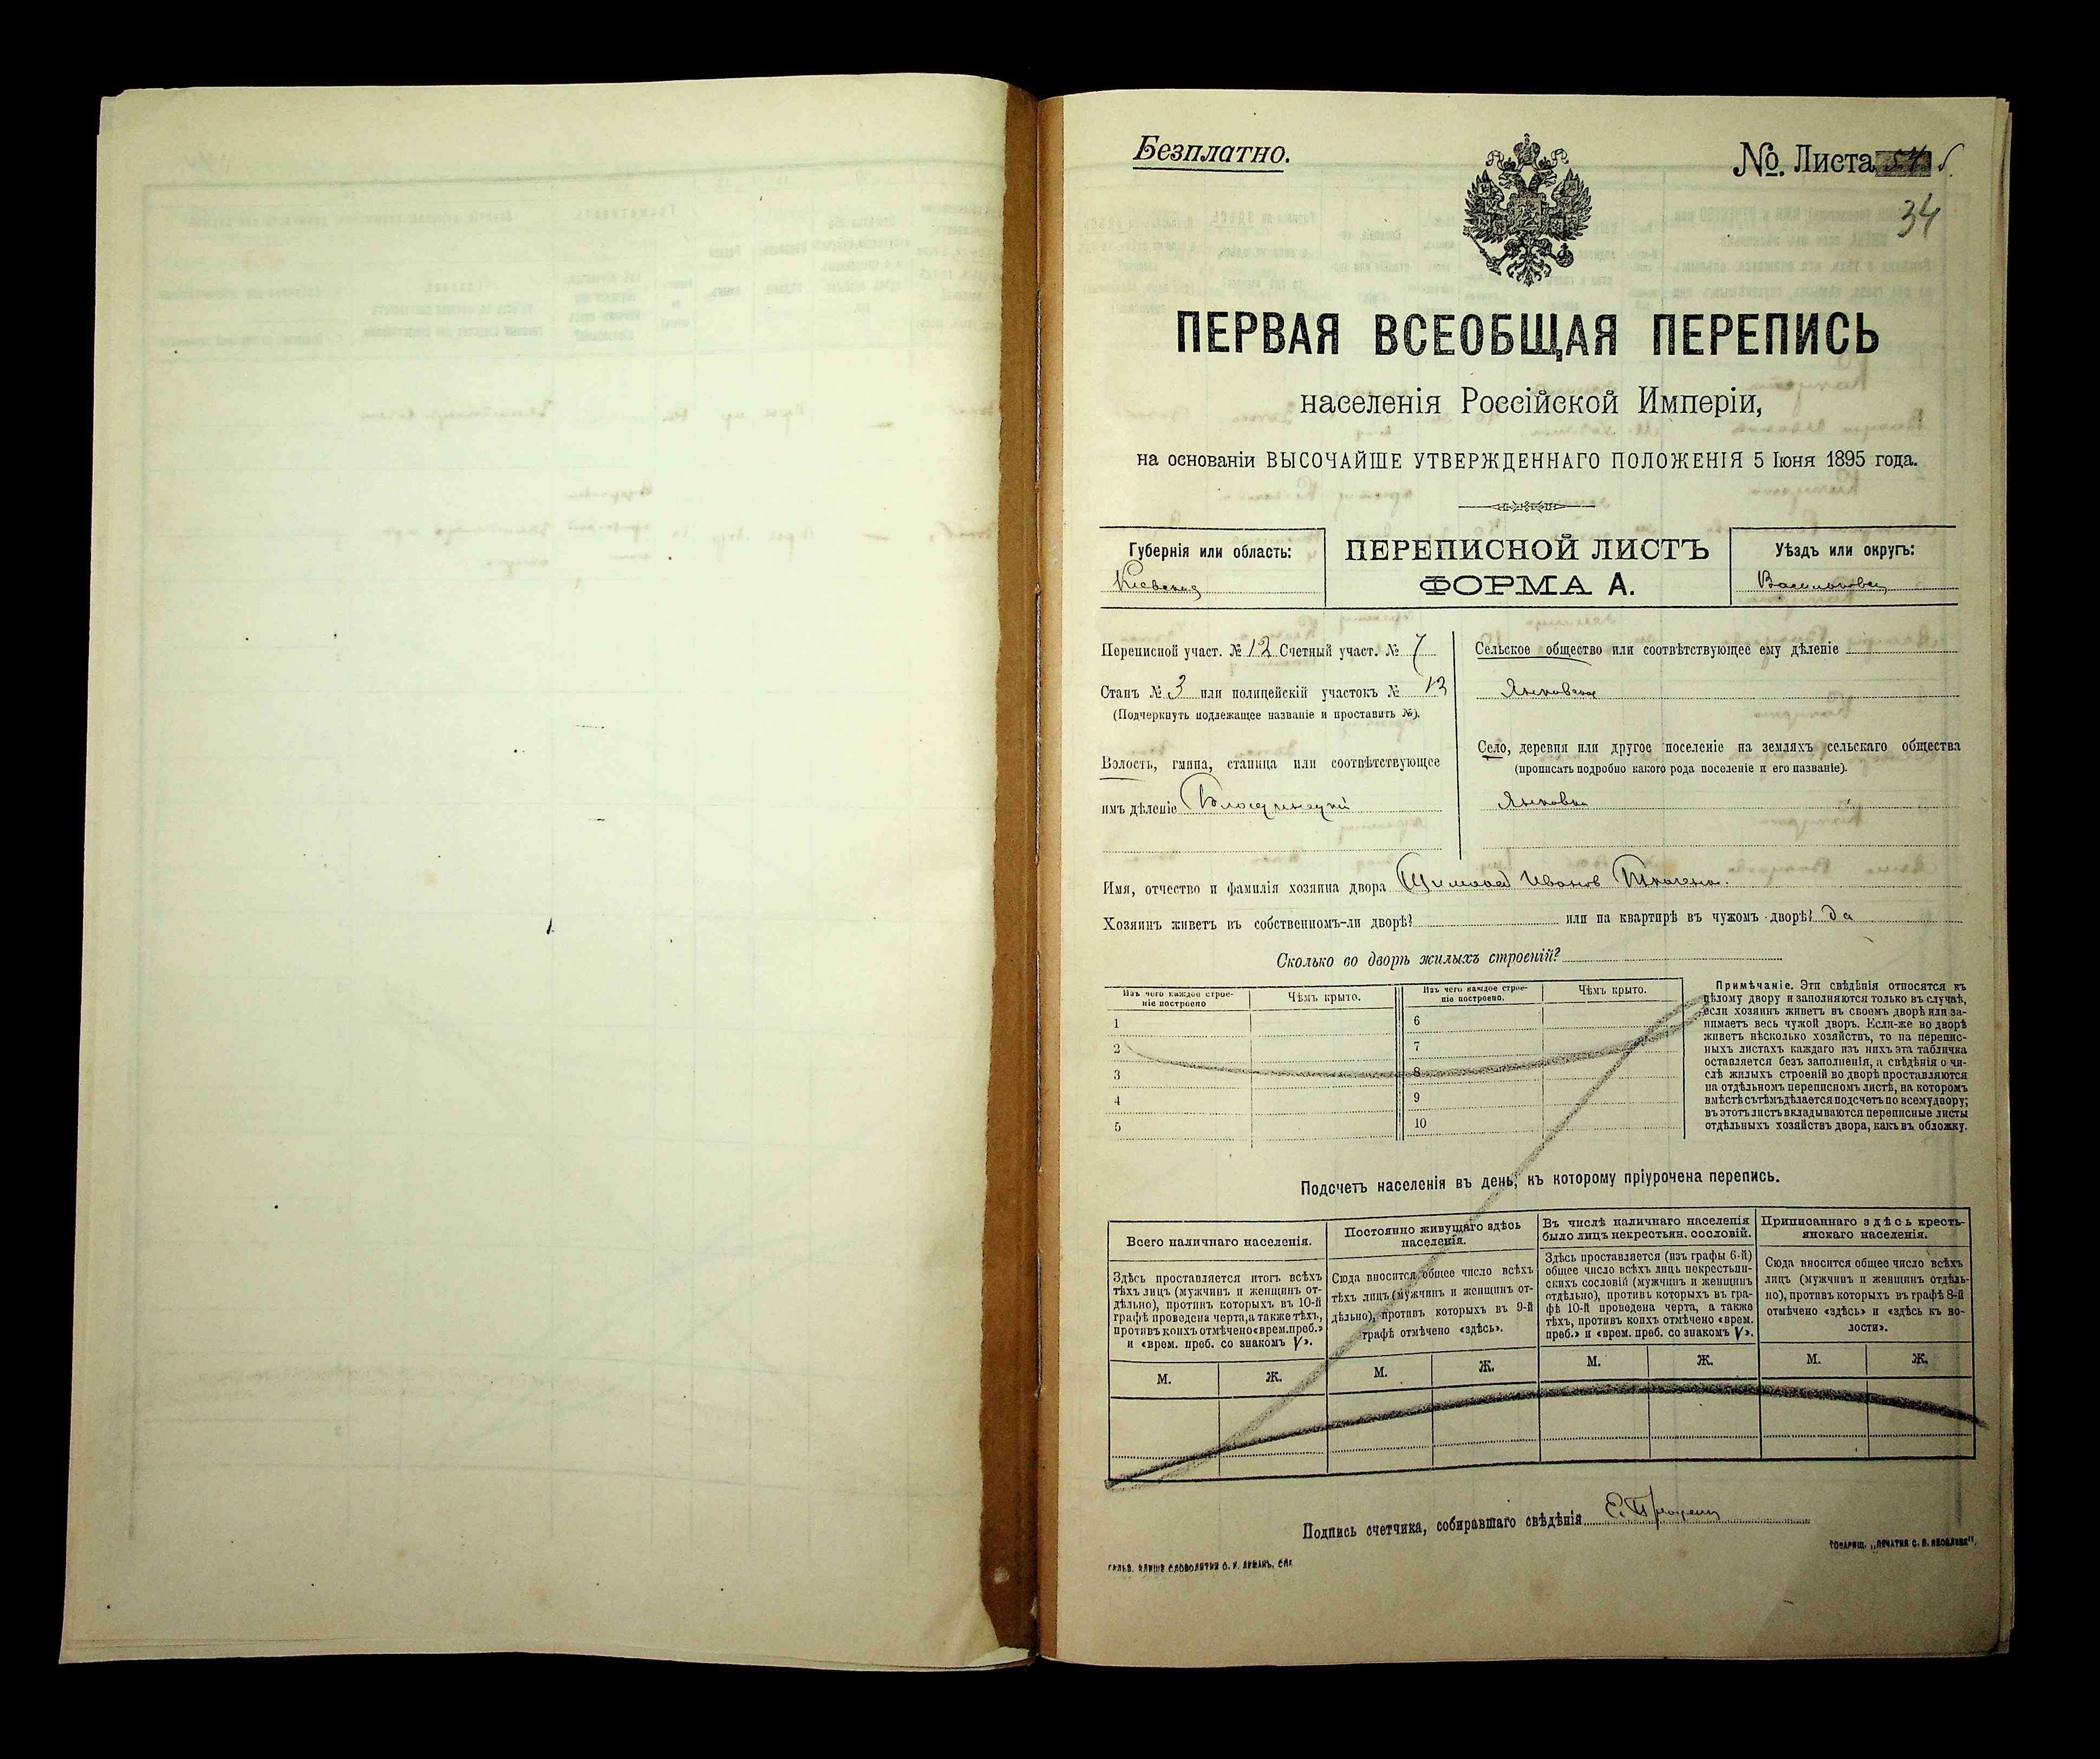 Безплатно.
№ Листа 54 б.
34
ПЕРВАЯ ВСЕОБЩАЯ ПЕРЕПИСЬ
населенія Россійской Имперіи,
на основаніи ВЫСОЧАЙШЕ УТВЕРЖДЕННАГО ПОЛОЖЕНІЯ 5 Іюня 1895 года.
Губернія или область:
Кіевская
ПЕРЕПИСНОЙ ЛИСТЪ
ФОРМА А.
Уѣздъ или округъ:
Васильковск
Переписной участ. № 12 Счетный участ. № 7
Станъ № 3 или полицейскій участокъ № 13
(Подчеркнуть подлежащее названіе и проставить №).
Волость, гмина, станица или соотвѣтствующее
имъ дѣленіе
Сельское общество или соотвѣтствующее ему дѣленіе
Янковское
Село, деревня или другое поселеніе на земляхъ сельскаго общества
(прописать подробно какого рода поселеніе и его названіе).
Янковка
Имя, отчество и фамилія хозяина двора Иванов
Хозяинъ живетъ въ собственномъ-ли дворѣ? или на квартирѣ въ чужомъ дворѣ? да
Сколько во дворѣ жилыхъ строеній?
Изъ чего каждое строе-
ніе построено
Чѣмъ крыто.
Изъ чего каждое строе-
ніе построено.
Чѣмъ крыто.
1
2
3
4
5
6
7
8
9
10
Примѣчаніе. Эти свѣдѣнія относятся къ
цѣлому двору и заполняются только въ случаѣ,
если хозяинъ живетъ въ своемъ дворѣ или за-
нимаетъ весь чужой дворъ. Если-же во дворѣ
живетъ нѣсколько хозяйствъ, то на перепис-
ныхъ листахъ каждаго изъ нихъ эта табличка
оставляется безъ заполненія, а свѣдѣнія о чи-
слѣ жилыхъ строеній во дворѣ проставляются
на отдѣльномъ переписномъ листѣ, на которомъ
вмѣстѣ съ тѣмъ дѣлается подсчетъ по всему двору;
въ этотъ листъ вкладываются переписные листы
отдѣльныхъ хозяйствъ двора, какъ въ обложку.
Подсчетъ населенія въ день, къ которому пріурочена перепись.
Всего наличнаго населенія.
Здѣсь проставляется итогъ всѣхъ
тѣхъ лицъ (мужчинъ и женщинъ от-
дѣльно), противъ которыхъ въ 10-й
графѣ проведена черта, а также тѣхъ,
противъ коихъ отмѣчено «врем. преб.»
и «врем. преб. со знакомъ V».
М.
Ж.
Постоянно живущаго здѣсь
населенія.
Сюда вносится общее число всѣхъ
тѣхъ лицъ (мужчинъ и женщинъ от-
дѣльно), противъ которыхъ въ 9-й
графѣ отмѣчено «здѣсь».
М.
Ж.
Въ числѣ наличнаго населенія
было лицъ некрестьян. сословій.
Здѣсь проставляется (изъ графы 6-й)
общее число всѣхъ лицъ некрестьян-
скихъ сословій (мужчинъ и женщинъ
отдѣльно), противъ которыхъ въ гра-
фѣ 10-й проведена черта, а также
тѣхъ, противъ коихъ отмѣчено «врем.
преб.» и «врем. преб. со знакомъ V».
М.
Ж.
Приписаннаго здѣсь кресть-
янскаго населенія.
Сюда вносится общее число всѣхъ
лицъ (мужчинъ и женщинъ отдѣль-
но), противъ которыхъ въ графѣ 8-й
отмѣчено «здѣсь» и «здѣсь къ во-
лости».
М.
Ж.
Подпись счетчика, собиравшаго свѣдѣнія
ТОВАРИЩ. „ПЕЧАТНЯ С. П. ЯКОВЛЕВА".